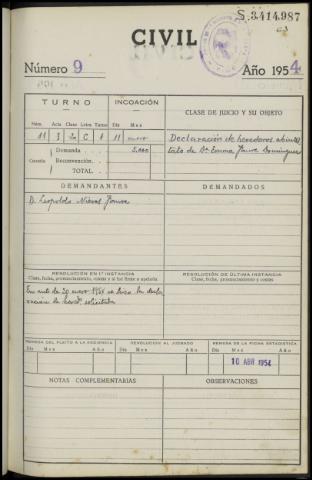 S.3414.987
CIVIL
Número 9
Año 1954
TURNO
INCOACIÓN
CLASE DE JUICIO Y SU OBJETO
Núm. Clase Letra Turno Día Mes
11 3 C 1 11 enero
Declaración de herederos abintes
tato de Dª Emma Domínguez
Cuantía
Demanda 5.000
Reconvención.
TOTAL.
DEMANDANTES
DEMANDADOS
D. Leopoldo
RESOLUCIÓN EN 1ª INSTANCIA
Clase, fecha, pronunciamiento, costas y si fué firme o apelada
RESOLUCIÓN DE ÚLTIMA INSTANCIA
Clase, fecha, pronunciamiento y costas
Por auto de 20 enero 1954 se hizo la decla
ración de hered. solicitada
REMESA DEL PLEITO A LA AUDIENCIA
DEVOLUCIÓN AL JUZGADO
REMESA DE LA FICHA ESTADÍSTICA
Día Mes Año
Día Mes Año
Día Mes Año
10 ABR 1954
NOTAS COMPLEMENTARIAS
OBSERVACIONES